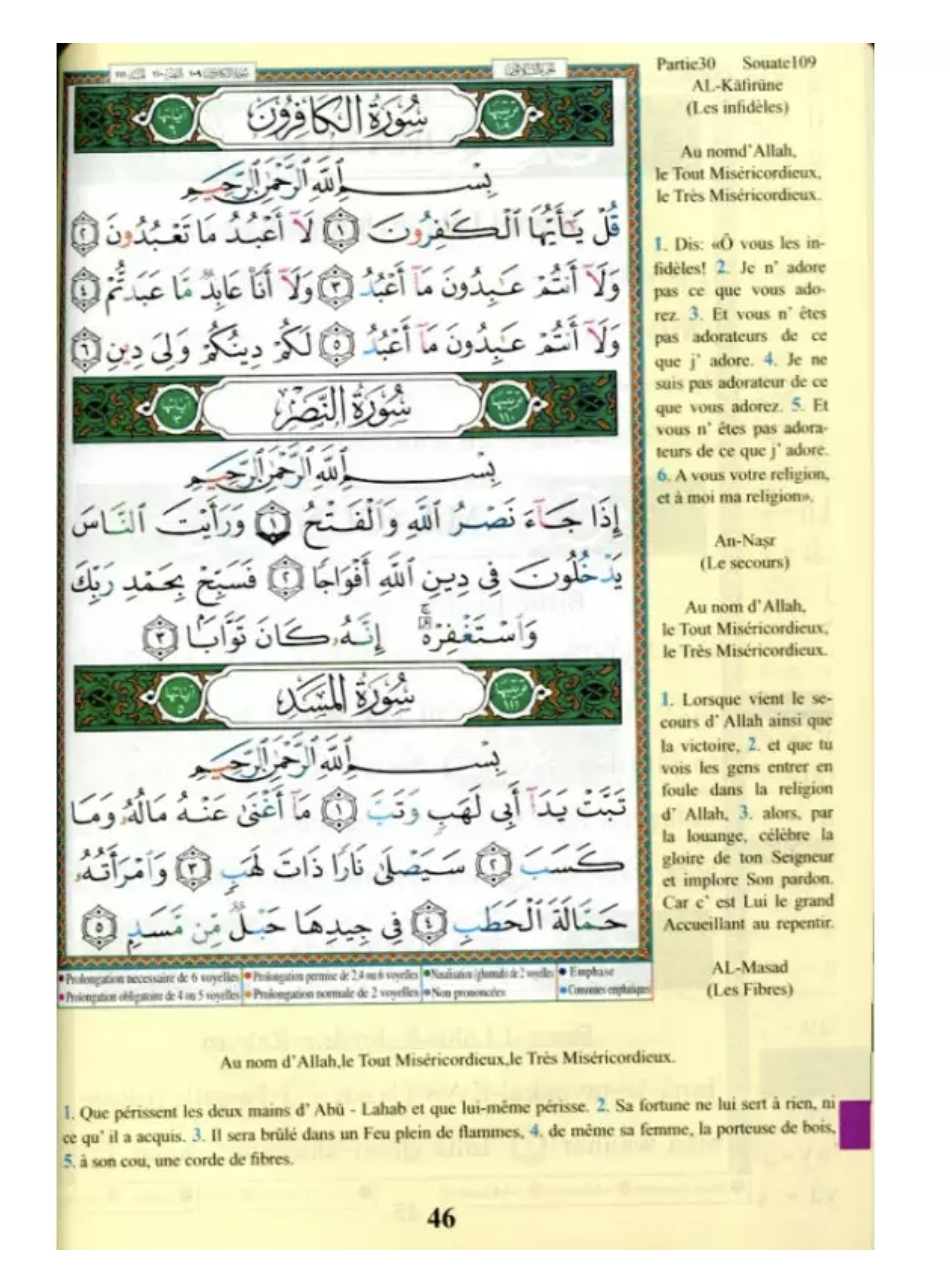 سورة الكافرون ١٠٩ النصر ١١٠ المسد ١١١
Partie30 Souate109
AL-Kāfirūne
(Les infidèles)
Au nomd'Allah,
le Tout Miséricordieux,
le Très Miséricordieux.
1. Dis: «Ô vous les in-
fidèles! 2. Je n' adore
pas ce que vous ado-
rez. 3. Et vous n' êtes
pas adorateurs de ce
que j' adore. 4. Je ne
suis pas adorateur de ce
que vous adorez. 5. Et
vous n' êtes pas adora-
teurs de ce que j' adore.
6. A vous votre religion,
et à moi ma religion».
An-Naṣr
(Le secours)
Au nom d'Allah,
le Tout Miséricordieux,
le Très Miséricordieux.
1. Lorsque vient le se-
cours d' Allah ainsi que
la victoire, 2. et que tu
vois les gens entrer en
foule dans la religion
d' Allah, 3. alors, par
la louange, célèbre la
gloire de ton Seigneur
et implore Son pardon.
Car c' est Lui le grand
Accueillant au repentir.
AL-Masad
(Les Fibres)
ترتيبها ١٠٩ سُورَةُ الكَافِرُونَ آياتها ٦
بِسْمِ ٱللَّهِ ٱلرَّحْمَٰنِ ٱلرَّحِيمِ
قُلْ يَٰٓأَيُّهَا ٱلْكَٰفِرُونَ ١ لَآ أَعْبُدُ مَا تَعْبُدُونَ ٢
وَلَآ أَنتُمْ عَٰبِدُونَ مَآ أَعْبُدُ ٣ وَلَآ أَنَا۠ عَابِدٌ مَّا عَبَدتُّمْ ٤
وَلَآ أَنتُمْ عَٰبِدُونَ مَآ أَعْبُدُ ٥ لَكُمْ دِينُكُمْ وَلِىَ دِينِ ٦
ترتيبها ١١٠ سُورَةُ النَّصْرِ آياتها ٣
بِسْمِ ٱللَّهِ ٱلرَّحْمَٰنِ ٱلرَّحِيمِ
إِذَا جَآءَ نَصْرُ ٱللَّهِ وَٱلْفَتْحُ ١ وَرَأَيْتَ ٱلنَّاسَ
يَدْخُلُونَ فِى دِينِ ٱللَّهِ أَفْوَاجًا ٢ فَسَبِّحْ بِحَمْدِ رَبِّكَ
وَٱسْتَغْفِرْهُ ۚ إِنَّهُۥ كَانَ تَوَّابًۢا ٣
ترتيبها ١١١ سُورَةُ المَسَدِ آياتها ٥
بِسْمِ ٱللَّهِ ٱلرَّحْمَٰنِ ٱلرَّحِيمِ
تَبَّتْ يَدَآ أَبِى لَهَبٍ وَتَبَّ ١ مَآ أَغْنَىٰ عَنْهُ مَالُهُۥ وَمَا
كَسَبَ ٢ سَيَصْلَىٰ نَارًا ذَاتَ لَهَبٍ ٣ وَٱمْرَأَتُهُۥ
حَمَّالَةَ ٱلْحَطَبِ ٤ فِى جِيدِهَا حَبْلٌ مِّن مَّسَدٍۭ ٥
Prolongation nécessaire de 6 voyelles Prolongation permise de 2,4 ou 6 voyelles Nasalisation (ghunnah) de 2 voyelles Emphase
Prolongation obligatoire de 4 ou 5 voyelles Prolongation normale de 2 voyelles Non prononcées Consonnes emphatiques
Au nom d'Allah,le Tout Miséricordieux,le Très Miséricordieux.
1. Que périssent les deux mains d' Abū - Lahab et que lui-même périsse. 2. Sa fortune ne lui sert à rien, ni
ce qu' il a acquis. 3. Il sera brûlé dans un Feu plein de flammes, 4. de même sa femme, la porteuse de bois,
5. à son cou, une corde de fibres.
46